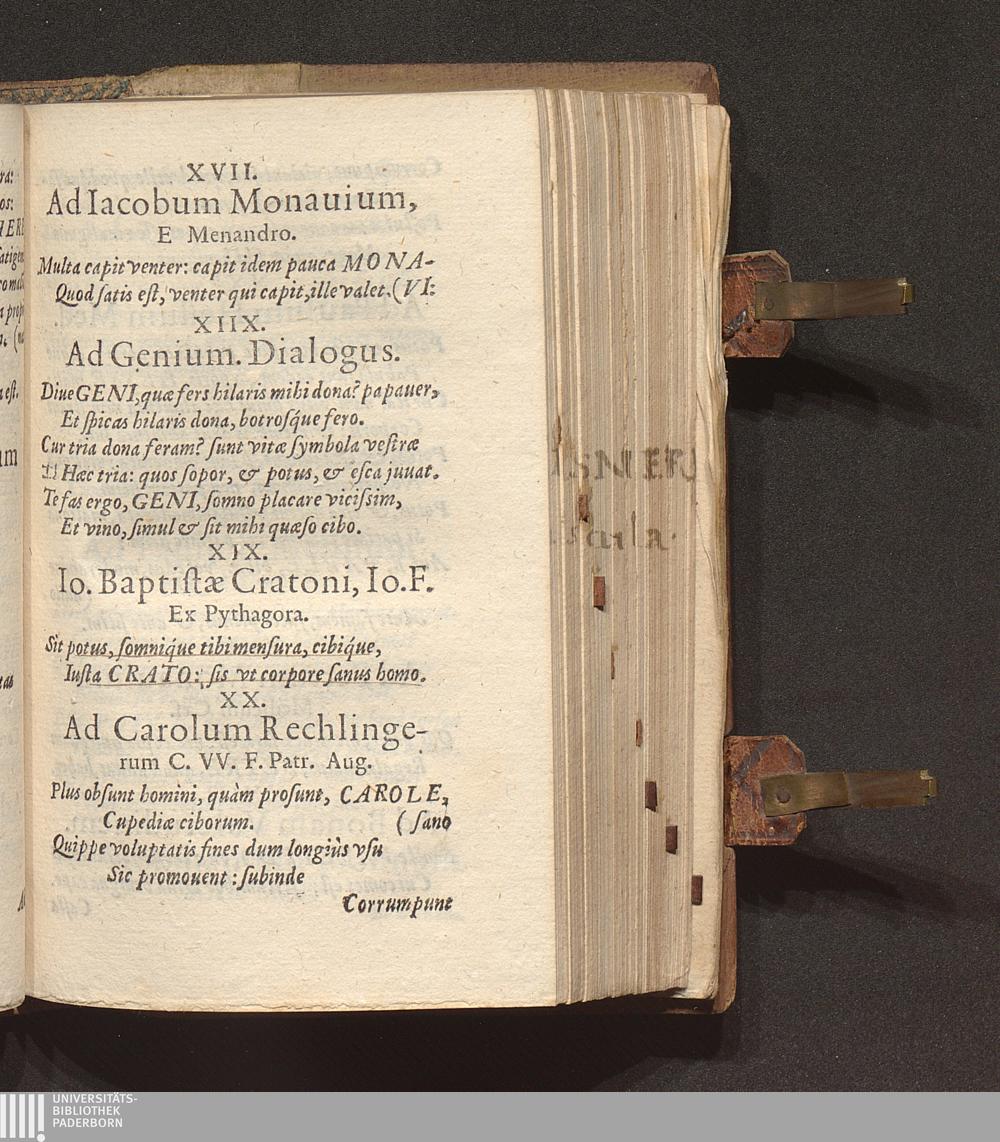 XVII.
Ad Iacobum Monauium,
E Menandro.
Multa capit venter: capit idem pauca MONA-
Quod satis est, venter qui capit, ille valet. (VI:
XIIX.
Ad Genium. Dialogus.
Diue GENI, quæ fers hilaris mihi dona? papauer,
Et spicas hilaris dona, botrosq́ue fero.
Cur tria dona feram? sunt vitæ symbola vestræ
Hæc tria: quos sopor, & potus, & esca juuat.
Te fas ergo, GENI, somno placare vicissim,
Et vino, simul & sit mihi quæso cibo.
XIX.
Io. Baptistæ Cratoni, Io. F.
Ex Pythagora.
Sit potus, somniq́ue tibi mensura, cibiq́ue,
Iusta CRATO: sis vt corpore sanus homo.
XX.
Ad Carolum Rechlinge-
rum C. VV. F. Patr. Aug.
Plus obsunt homini, quàm prosunt, CAROLE,
Cupediæ ciborum. (sano
Quippe voluptatis fines dum longiùs vsu
Sic promouent: subinde
Corrumpunt
ISNER
scula.
UNIVERSITÄTS-
BIBLIOTHEK
PADERBORN